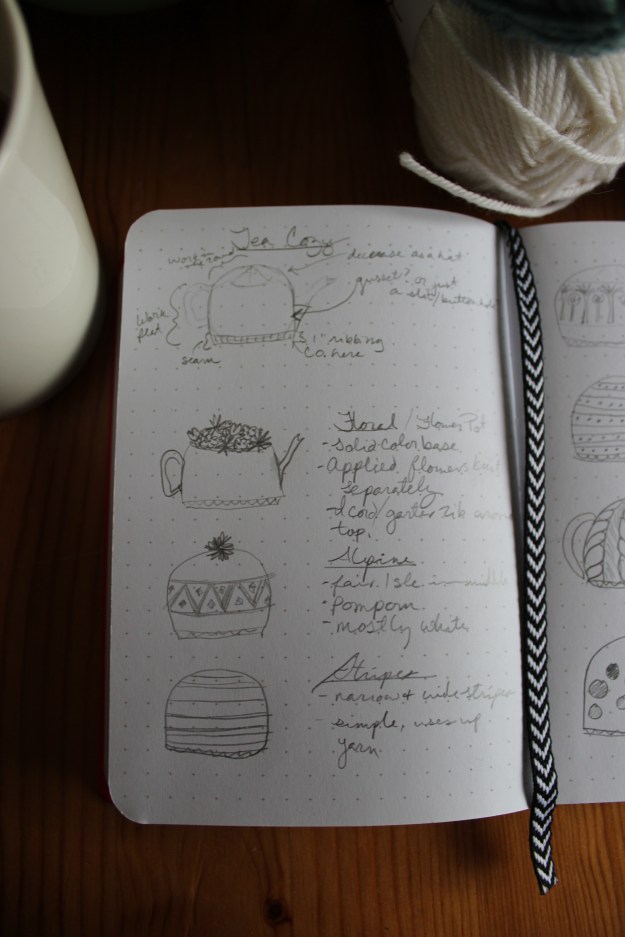 Tea Cozy
work in the round
decrease as a hat
gusset? or just
a slit/button hole
work
flat
1" ribbing
C.O. here
seam
Floral / Flower Pot
- Solid color base
- Applied flowers knit
separately
- I cord/garter rib around
top.
Alpine
- fair Isle in middle
- Pompom
- mostly white
Stripes
- narrow & wide stripes
- simple, uses up
yarn.